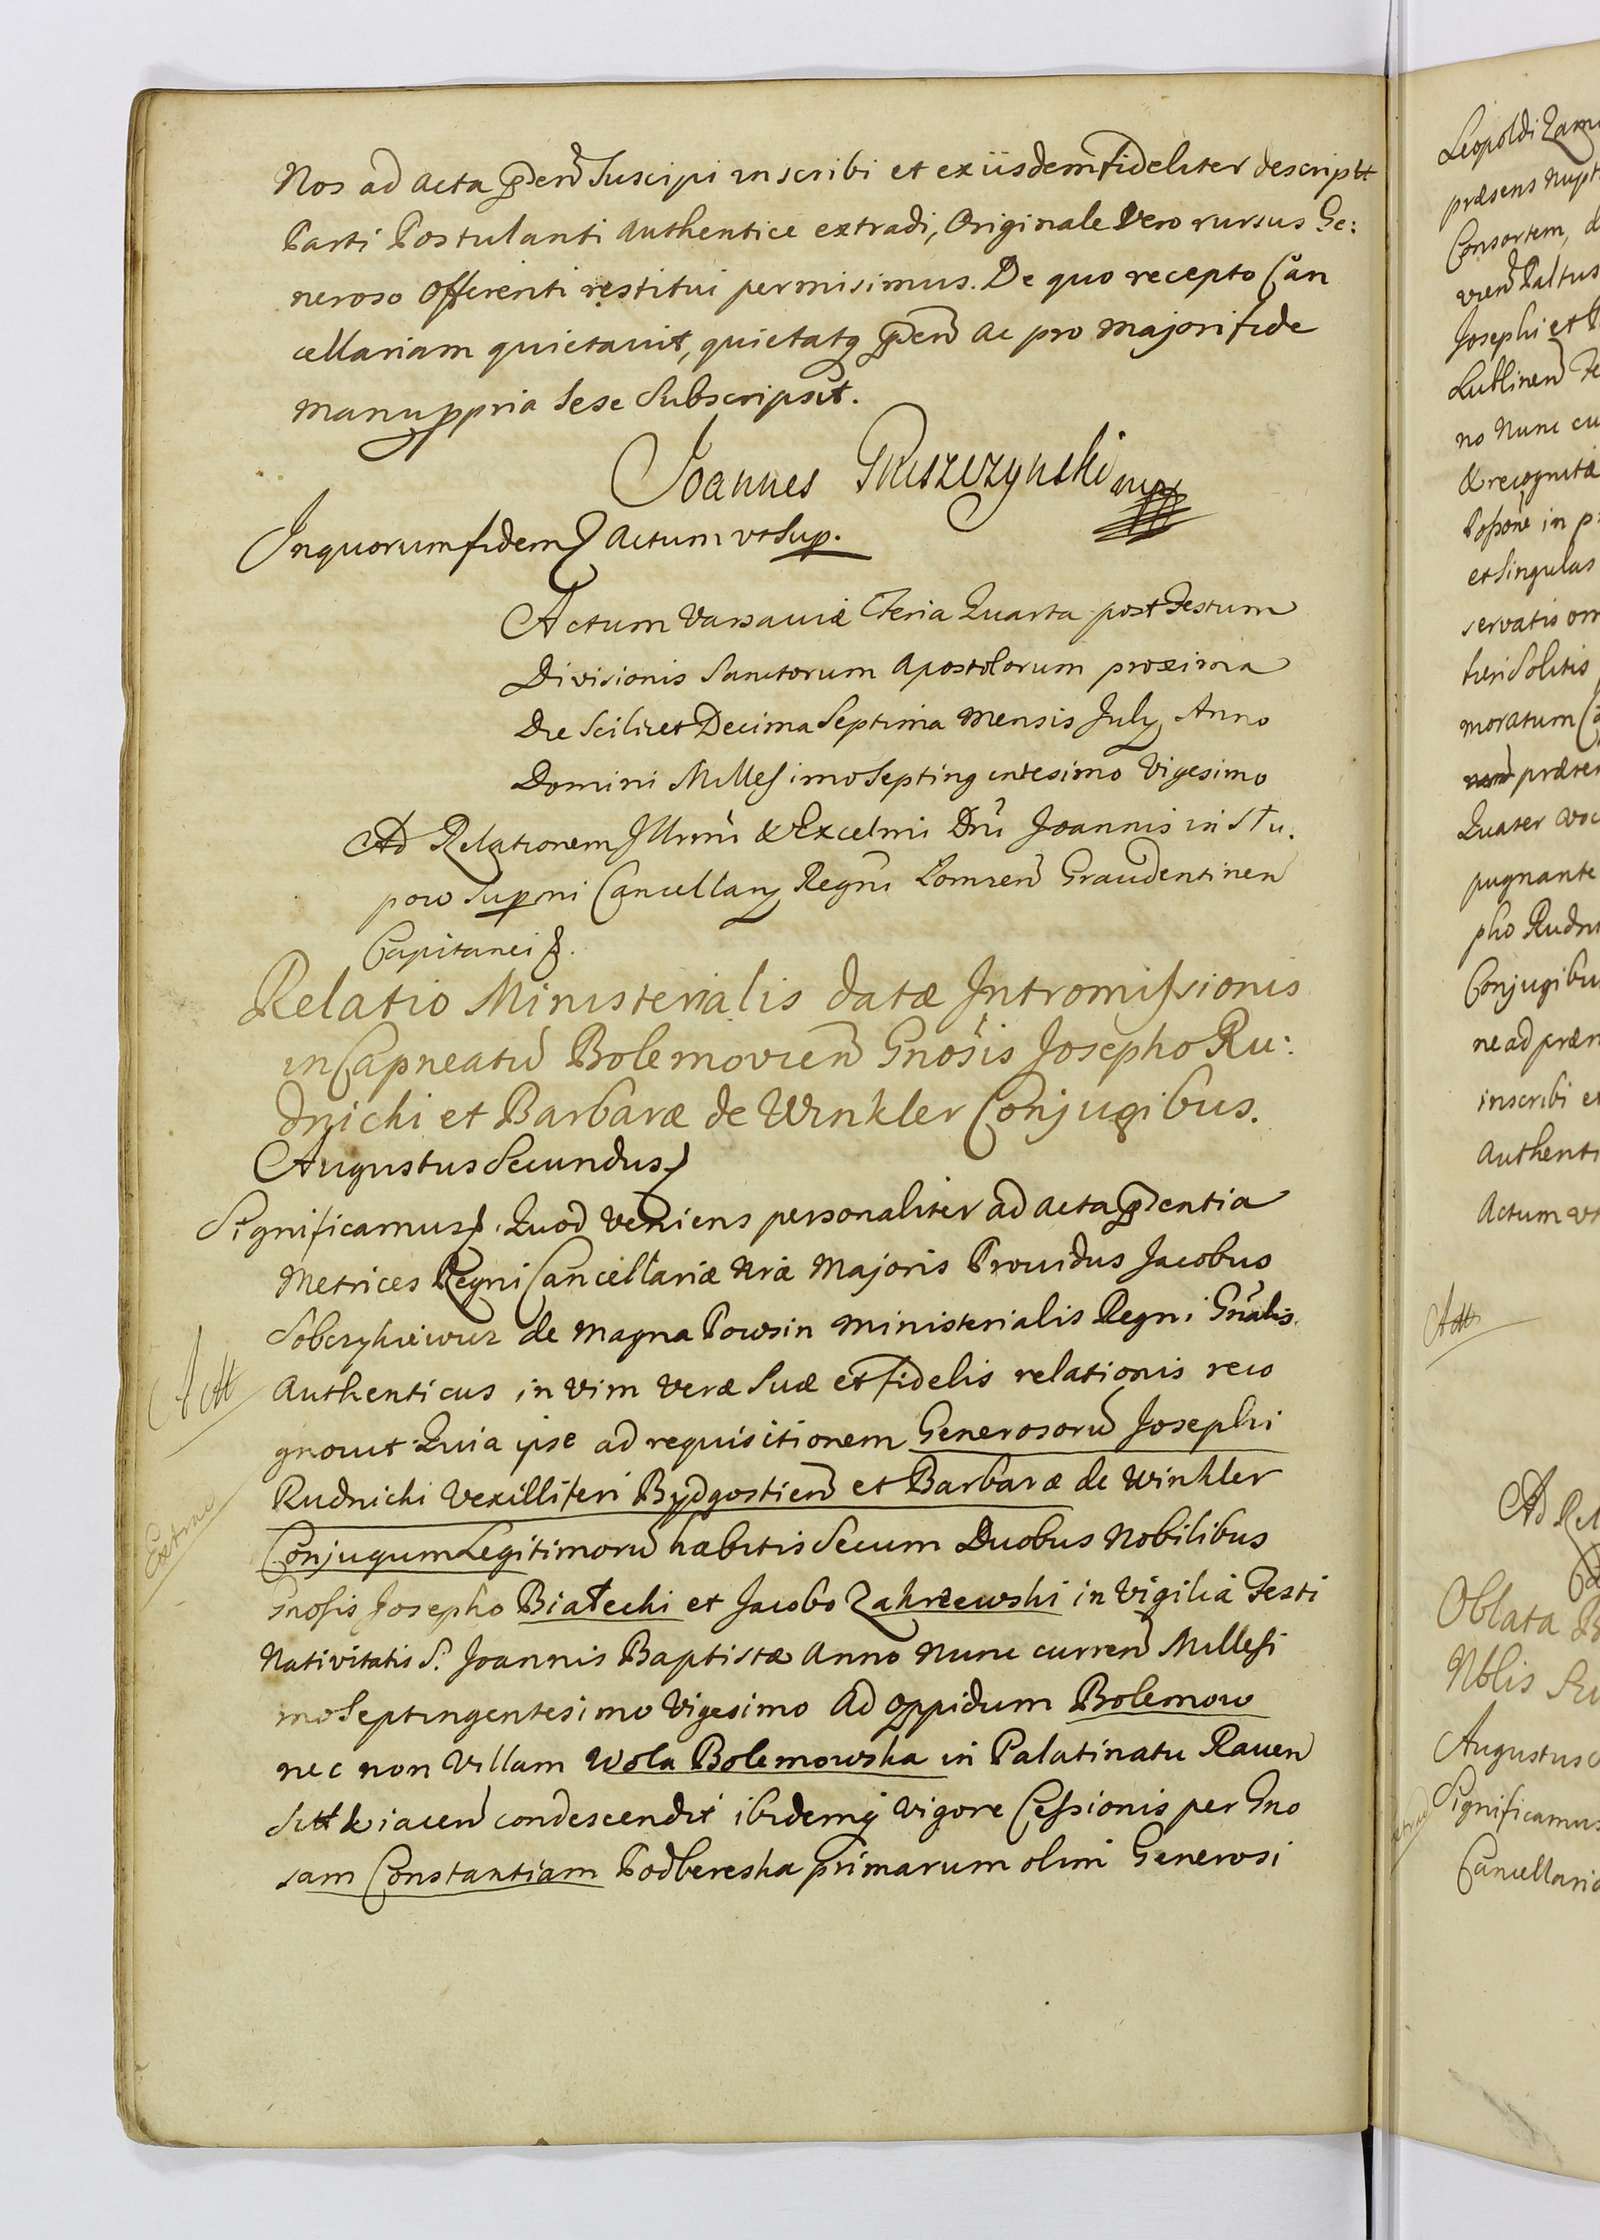 Nos ad acta pñten Suscipi inscribi et exiisdem fideliter descriptt
Parti Postulanti Authentice extradi, Originale Vero rursus Ge:
neroso Offerenti restitui permisimus. De quo recepto Can
cellariam quietavit, quietatq pñten ac pro majori fide
manu ppria Sese Subscripsit.
Joannes mp
In quorum fidem Actum vt Sup.
Actum Varsaviæ Feria Quarta post Festum
Divisionis Sanctorum Apostolorum proxima
Die Scilicet Decima Septima Mensis July Anno
Domini Millesimo Septingentesimo Vigesimo
Ad Relationem Illrmi & Excelmi Dni Joannis in Stu.
pow Supmi Cancellarij Regni Lomzen Graudentinen
Capitanei &.
Relatio Ministerialis datæ Intromissionis
in Capneatu Bolemovien Gnosis Josepho Ru:
dnicki et Barbaræ de Winkler Conjugibus.
Augustus Secundus
Significamus &. Quod Veniens personaliter ad acta pñtentia
Metrices Regni Cancellariæ Nræ Majoris Providus Jacobus
de Magna Powsin Ministerialis Regni Gnalis
Authenticus in vim veræ Suæ et fidelis relationis reco
gnovit Quia ipse ad requisitionem Generosoru Josephi
Rudnicki Vexilliferi Bydgostien et Barbaræ de Winkler
Conjugum Legitimoru habitis Secum Duobus Nobilibus
Gnosis Josepho Białecki et Jacobo Zakrzewski in Vigilia Festi
Nativitatis S. Joannis Baptistæ Anno Nunc curren Millesi
mo Septingentesimo Vigesimo ad Oppidum Bolemow
nec non Villam Wola Bolemowska in Palatinatu Raven
Sitt & iacen condescendit ibidemq Vigore Cessionis per Gno
sam Constantiam Podbereska primarum olim Generosi
Att
Extrad
Leopoldi
præsens
Consortem, d
Josephi et
Lublinen
no Nunc cu
& recognita
Possone in
et Singulas
servatis om
Solitis
moratum
Quater voc
pugnante
pho Rudni
Conjugibu
ne ad
inscribi et
Authenti
Actum vt
Att
Ad Rel
Oblata
Nblis
Augustus
Significamus
Cancellaria